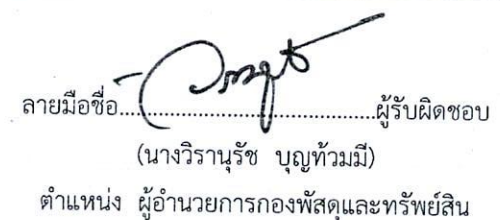 ลายมือชื่อ..........................................ผู้รับผิดชอบ
(นางวิรานุรัช บุญท้วมมี)
ตำแหน่ง ผู้อำนวยการกองพัสดุและทรัพย์สิน